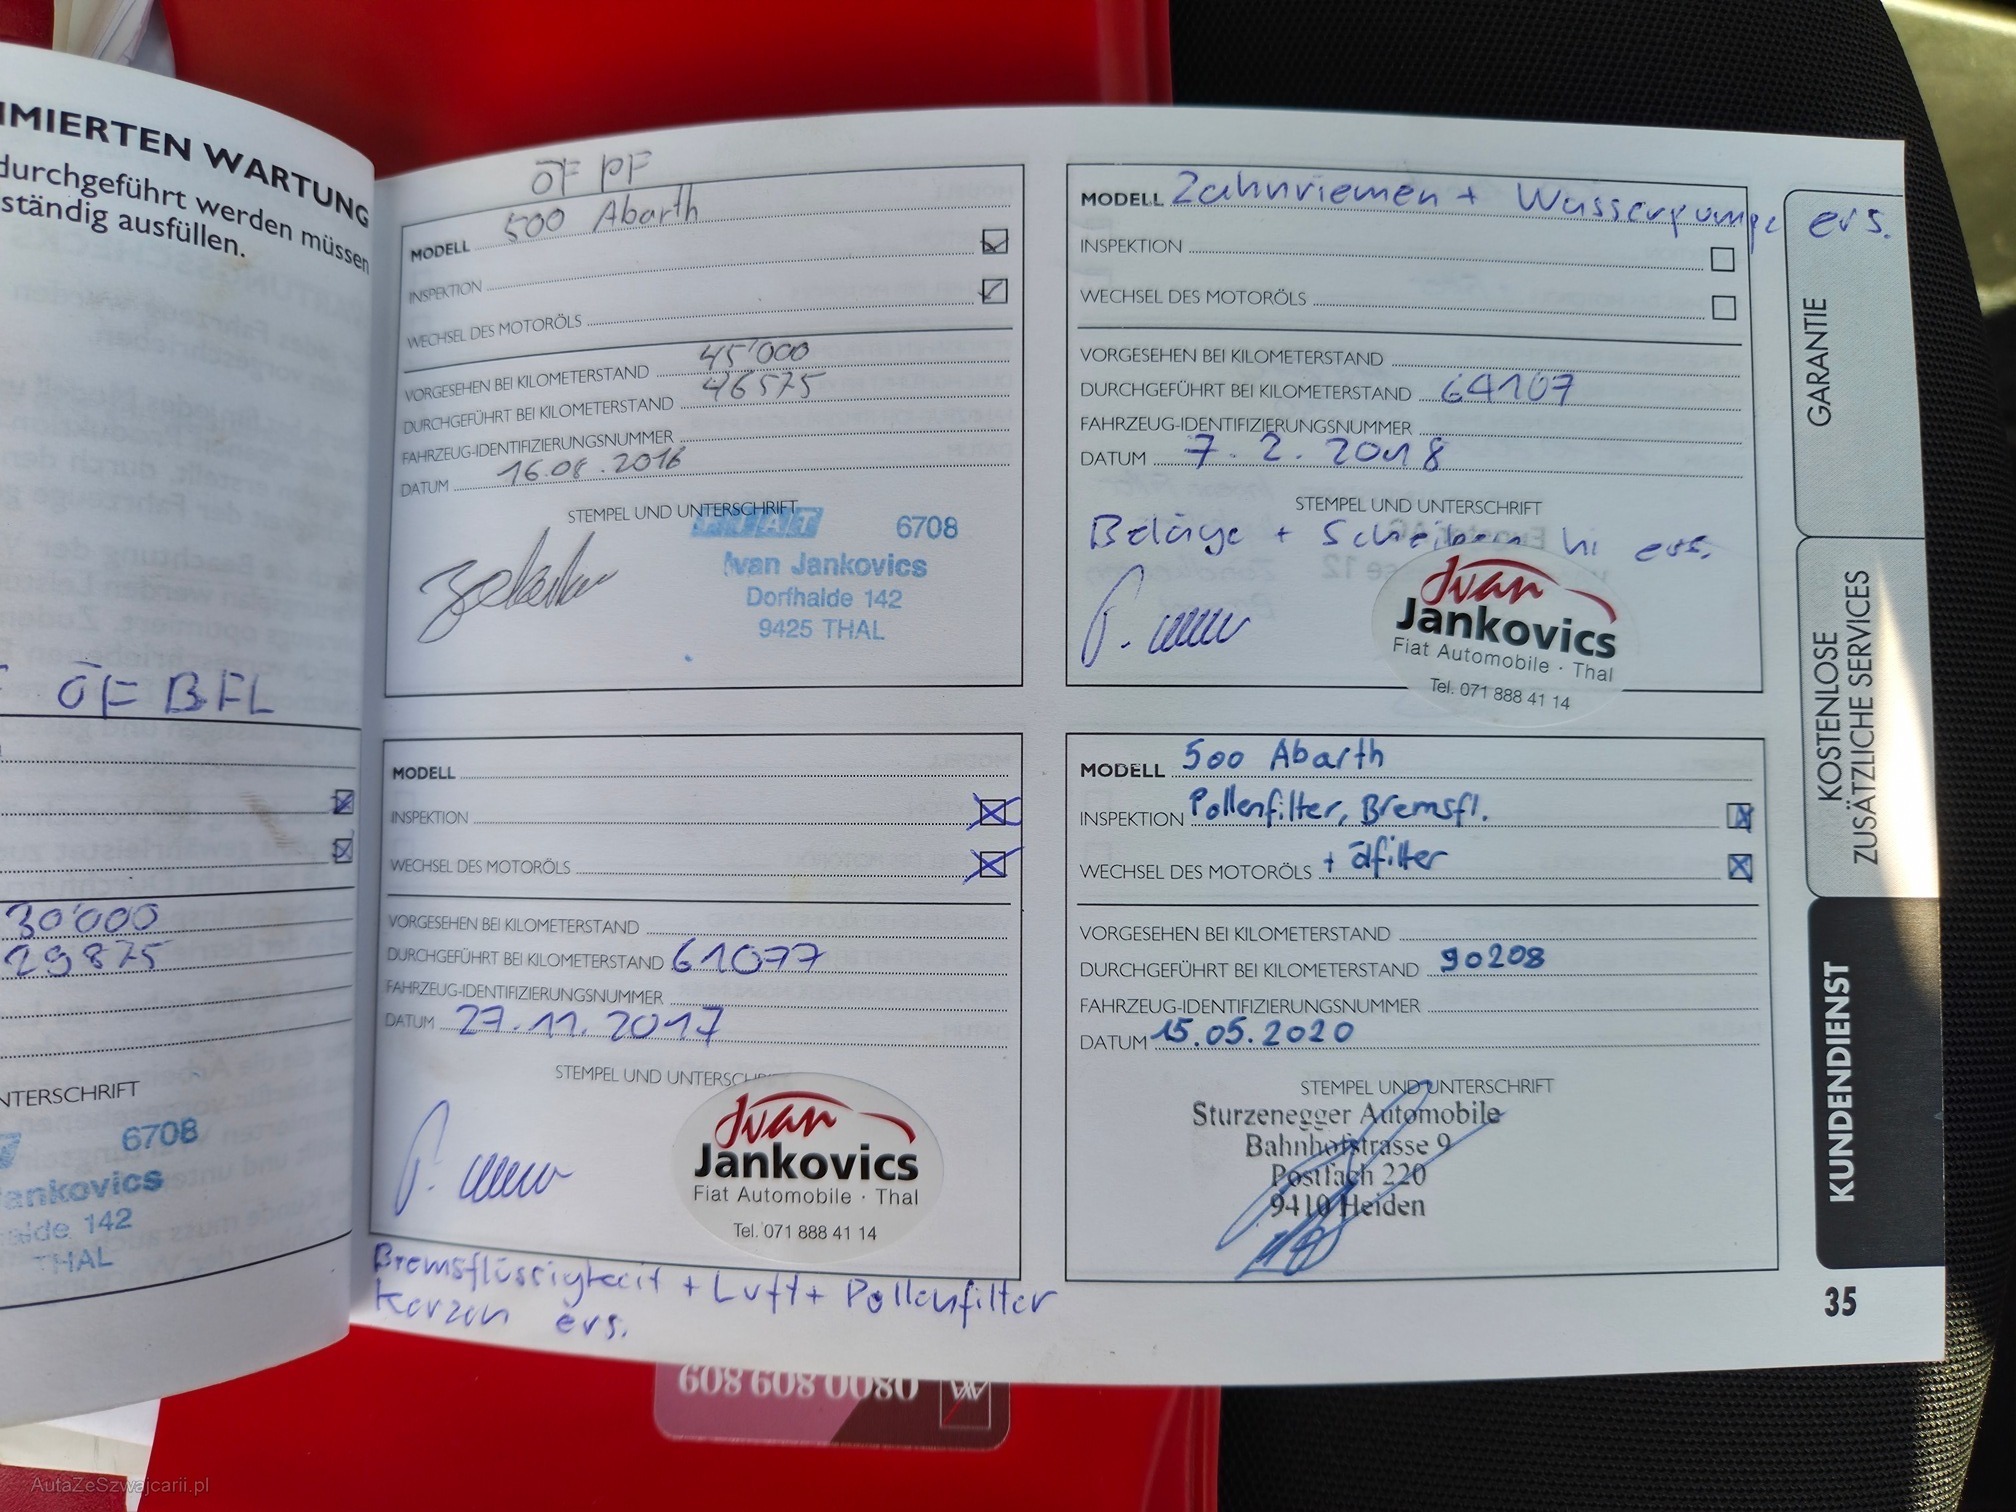 IMIERTEN WARTUNG
durchgeführt werden müssen
ständig ausfüllen.
ÖF BFL
30'000
29875
NTERSCHRIFT
6708
ankovics
alde 142
THAL
ÖF PF
MODELL 500 Abarth
INSPEKTION
WECHSEL DES MOTORÖLS
VORGESEHEN BEI KILOMETERSTAND 45'000
DURCHGEFÜHRT BEI KILOMETERSTAND 46575
FAHRZEUG-IDENTIFIZIERUNGSNUMMER
DATUM 16.08.2016
STEMPEL UND UNTERSCHRIFT
FIAT 6708
Ivan Jankovics
Dorfhalde 142
9425 THAL
MODELL Zahnriemen + Wasserpumpe ers.
INSPEKTION
WECHSEL DES MOTORÖLS
VORGESEHEN BEI KILOMETERSTAND
DURCHGEFÜHRT BEI KILOMETERSTAND 64107
FAHRZEUG-IDENTIFIZIERUNGSNUMMER
DATUM 7.2.2018
STEMPEL UND UNTERSCHRIFT
Beläge + Scheiben hi ers.
Ivan
Jankovics
Fiat Automobile · Thal
Tel. 071 888 41 14
MODELL
INSPEKTION
WECHSEL DES MOTORÖLS
VORGESEHEN BEI KILOMETERSTAND
DURCHGEFÜHRT BEI KILOMETERSTAND 61077
FAHRZEUG-IDENTIFIZIERUNGSNUMMER
DATUM 27.11.2017
STEMPEL UND UNTERSCHRIFT
Ivan
Jankovics
Fiat Automobile · Thal
Tel. 071 888 41 14
Bremsflüssigkeit + Luft + Pollenfilter
Kerzen ers.
MODELL 500 Abarth
INSPEKTION Pollenfilter, Bremsfl.
WECHSEL DES MOTORÖLS + Ölfilter
VORGESEHEN BEI KILOMETERSTAND
DURCHGEFÜHRT BEI KILOMETERSTAND 90208
FAHRZEUG-IDENTIFIZIERUNGSNUMMER
DATUM 15.05.2020
STEMPEL UND UNTERSCHRIFT
Sturzenegger Automobile
Bahnhofstrasse 9
Postfach 220
9410 Heiden
GARANTIE
KOSTENLOSE
ZUSÄTZLICHE SERVICES
KUNDENDIENST
35
AutaZeSzwajcarii.pl